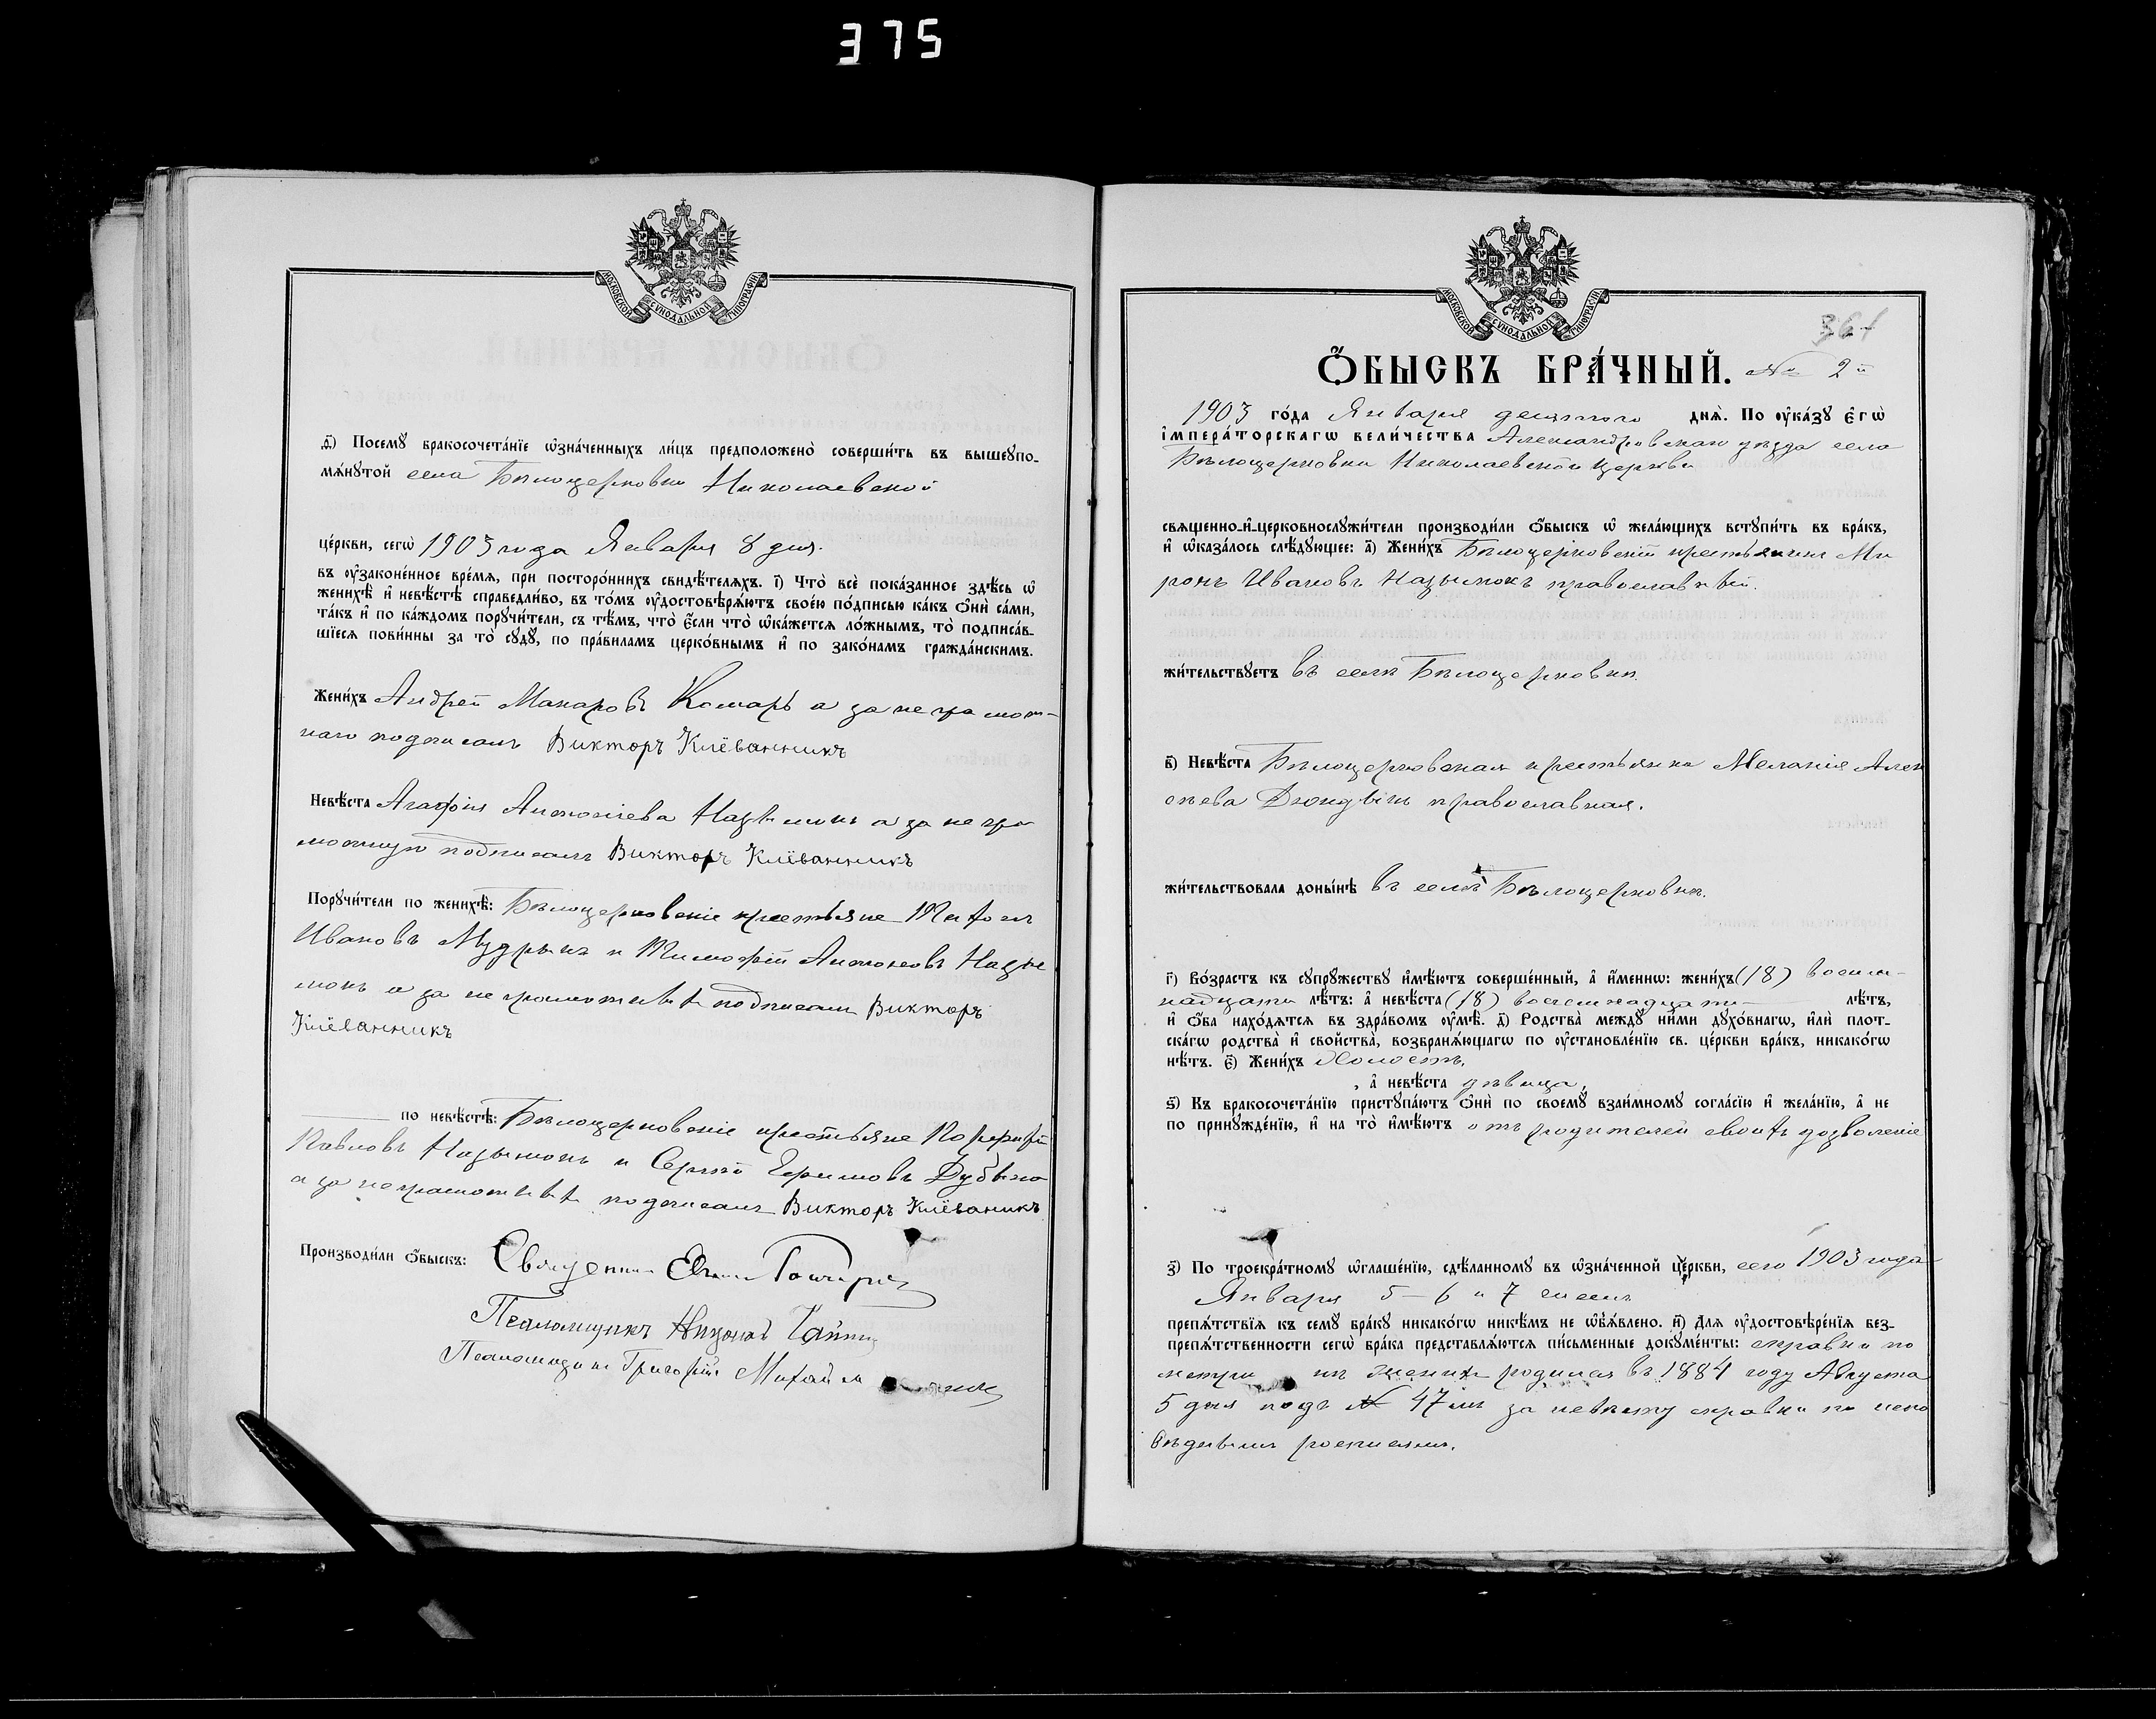 375
МОСКОВСКОЙ СУНОДАЛЬНОЙ ТИПОГРАФІИ
ѳ҃) Посемꙋ бракосочета́нїе ѡ҆зна́ченныхъ ли́цъ предположено̀ соверши́ть въ вышеꙋпо-
мѧ́нꙋтой села Бѣлоцерковки Николаевской
це́ркви, сегѡ̀ 1903 года Января 8 дня.
въ ᲂу҆законе́нное вре́мѧ, при посторо́ннихъ свидѣ́телѧхъ. і҃) Что̀ всѐ пока́занное здѣ́сь ѡ҆
женихѣ̀ и҆ невѣ́стѣ справедли́во, въ то́мъ ᲂу҆достовѣрѧ́ютъ свое́ю по́дписью ка́къ ѻ҆нѝ са́ми,
та́къ и҆ по ка́ждомъ порꙋчи́тели, съ тѣ́мъ, что̀ є҆́сли что̀ ѡ҆ка́жетсѧ ло́жнымъ, то̀ подписа́в-
шїесѧ пови́нны за то̀ сꙋдꙋ̀, по пра́виламъ церко́внымъ и҆ по зако́намъ гражда́нскимъ.
Жени́хъ Андрей Макаровъ Комарь а за неграмот-
наго подписалъ Викторъ Клёванникъ
Невѣ́ста Агафія Антоніева Назымокъ а за негра
мотную подписалъ Викторъ Клёванникъ
Порꙋчи́тели по женихѣ̀: Бѣлоцерковскіе крестьяне
Ивановъ Мудрыкъ и Тимофей Антоновъ Назы
мокъ а за неграмотныхъ подписалъ Викторъ
Клёванникъ
по невѣ́стѣ: Бѣлоцерковскіе крестьяне Порфирій
Павловъ Назымокъ и Сергѣй Ефимовъ
а за неграмотныхъ подписалъ Викторъ Клёваникъ
Производи́ли ѻ҆́быскъ: Священник
Псаломщикъ
Псаломщикъ Григорій
МОСКОВСКОЙ СУНОДАЛЬНОЙ ТИПОГРАФІИ
361
Ѻ҆́БЫСКЪ БРА́ЧНЫЙ. № 2й
1903 го́да Января десятого днѧ̀. По ᲂу҆ка́зꙋ є҆гѡ̀
і҆мпера́торскагѡ вели́чества Александровскаго уѣзда села
Бѣлоцерковки Николаевской церкви
свѧщенно-и҆-церковнослꙋжи́тели производи́ли ѻ҆́быскъ ѡ҆ жела́ющихъ встꙋпи́ть въ бра́къ,
и҆ ѡ҆каза́лось слѣ́дꙋющее: а҃) Жени́хъ Бѣлоцерковскій крестьянинъ Ми
ронъ Ивановъ Назымокъ православный.
жи́тельствꙋетъ въ селѣ Бѣлоцерковки.
в҃) Невѣ́ста Бѣлоцерковская крестьянка Меланія Алек
сѣева православная.
жи́тельствовала доны́нѣ въ селѣ Бѣлоцерковки.
г҃) Во́зрастъ къ сꙋпрꙋ́жествꙋ и҆мѣ́ютъ соверше́нный, а҆ и҆́меннѡ: жени́хъ (18) восем-
надцати лѣ́тъ: а҆ невѣ́ста (18) восемнадцати лѣ́тъ,
и҆ ѻ҆́ба нахо́дѧтсѧ въ здра́вомъ ᲂу҆мѣ̀. д҃) Родства̀ междꙋ̀ ни́ми дꙋхо́внагѡ, и҆лѝ плот-
ска́гѡ родства̀ и҆ сво́йства̀, возбранѧ́ющагѡ по ᲂу҆становле́нїю св. це́ркви бра́къ, никако́гѡ
нѣ́тъ. є҃) Жени́хъ холостъ,
, а҆ невѣ́ста дѣвица,
ѕ҃) Къ бракосочета́нїю пристꙋпа́ютъ ѻ҆нѝ по своемꙋ̀ взаи́мномꙋ согла́сїю и҆ жела́нїю, а҆ не
по принꙋжде́нїю, и҆ на то̀ и҆мѣ́ютъ отъ родителей своихъ дозволеніе
з҃) По троекра́тномꙋ ѡ҆глаше́нїю, сдѣ́ланномꙋ въ ѡ҆зна́ченной це́ркви, сего 1903 года
Января 5 – 6 и 7 числъ
препѧ́тствїѧ къ семꙋ̀ бра́кꙋ никако́гѡ никѣ́мъ не ѡ҆б̾ѧ́влено. и҃) Длѧ ᲂу҆достовѣре́нїѧ без-
препѧ́тственности сегѡ̀ бра́ка представлѧ́ютсѧ пи́сьменные докꙋме́нты: справки по
метри женихъ родился въ 1884 году Августа
5 дня подъ № 47 за невѣсту справки по испо
вѣднымъ росписямъ.